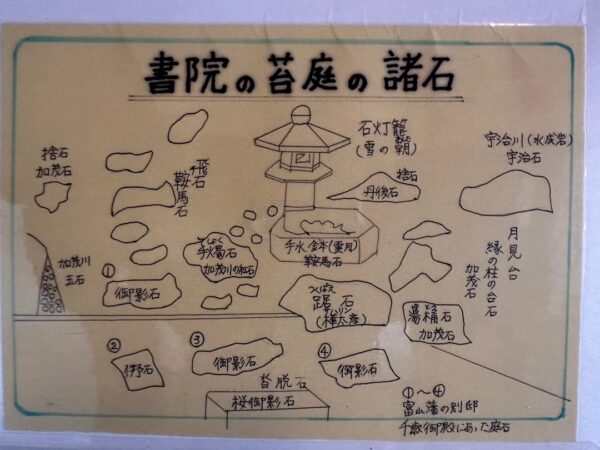 書院の苔庭の諸石
捨石
加茂石
飛石
鞍馬石
石灯籠
(雪の朝)
捨石
丹後石
宇治川(水成岩)
宇治石
加茂川
玉石
①
御影石
しょく
手燭石
加茂川の紅石
手水鉢(雪月)
鞍馬石
つくばい
踞石
(樺太産)
月見台
縁の柱の台石
加茂石
湯桶石
加茂石
②
伊予石
③
御影石
④
御影石
沓脱石
桜御影石
①〜④
富山藩の別邸
千歳御殿にあった庭石